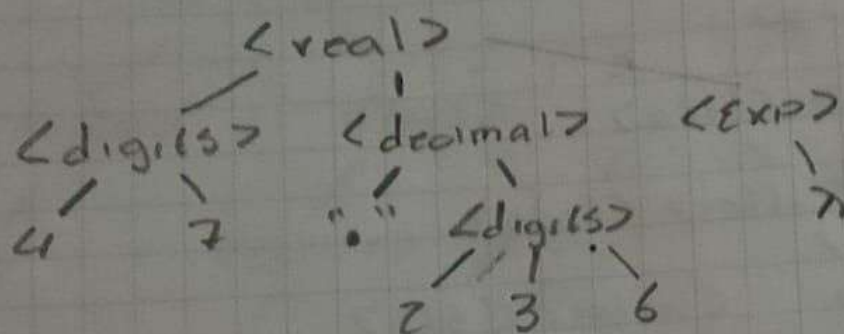 <real>
<digits> <decimal> <Exp>
4 7 "." <digits> λ
2 3 6